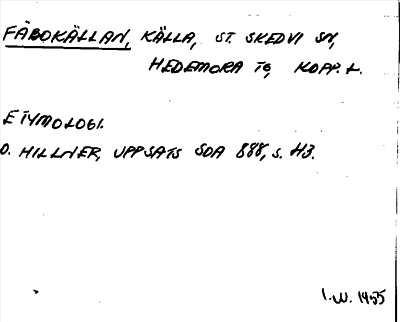 FÄBOKÄLLAN, KÄLLA, ST. SKEDVI SN,
HEDEMORA TG, KOPP. L.
ETYMOLOGI.
O. HILLNER, UPPSATS SOA 888, S. 43.
I.W. 1455